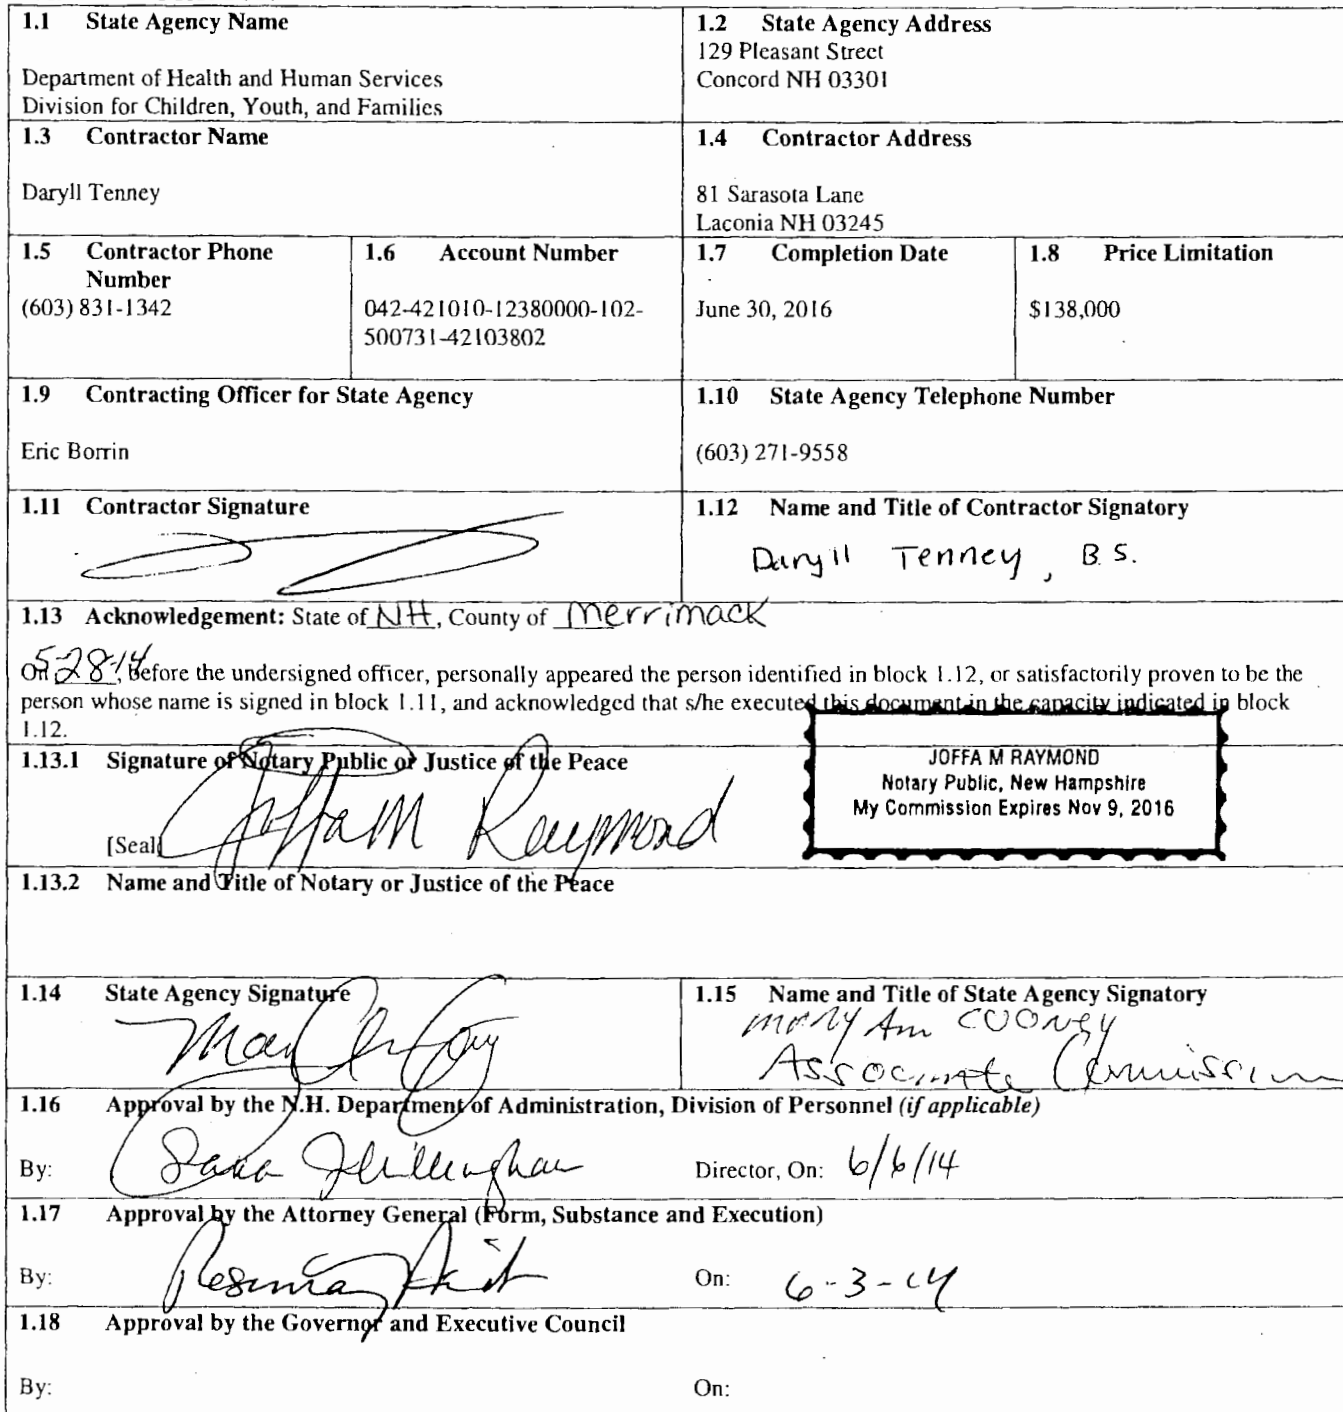 1.1 State Agency Name
Department of Health and Human Services
Division for Children, Youth, and Families
1.2 State Agency Address
129 Pleasant Street
Concord NH 03301
1.3 Contractor Name
Daryll Tenney
1.4 Contractor Address
81 Sarasota Lane
Laconia NH 03245
1.5 Contractor Phone
Number
(603) 831-1342
1.6 Account Number
042-421010-12380000-102-
500731-42103802
1.7 Completion Date
June 30, 2016
1.8 Price Limitation
$138,000
1.9 Contracting Officer for State Agency
Eric Borrin
1.10 State Agency Telephone Number
(603) 271-9558
1.11 Contractor Signature
1.12 Name and Title of Contractor Signatory
Daryll Tenney, B.S.
1.13 Acknowledgement: State of NH, County of Merrimack
On 5-28-14, before the undersigned officer, personally appeared the person identified in block 1.12, or satisfactorily proven to be the
person whose name is signed in block 1.11, and acknowledged that s/he executed this document in the capacity indicated in block
1.12.
1.13.1 Signature of Notary Public or Justice of the Peace
Joffa M Raymond
[Seal]
JOFFA M RAYMOND
Notary Public, New Hampshire
My Commission Expires Nov 9, 2016
1.13.2 Name and Title of Notary or Justice of the Peace
1.14 State Agency Signature
1.15 Name and Title of State Agency Signatory
Mary Ann Cooney
Associate Commissioner
1.16 Approval by the N.H. Department of Administration, Division of Personnel (if applicable)
By: Director, On: 6/6/14
1.17 Approval by the Attorney General (Form, Substance and Execution)
By: On: 6-3-14
1.18 Approval by the Governor and Executive Council
By: On: